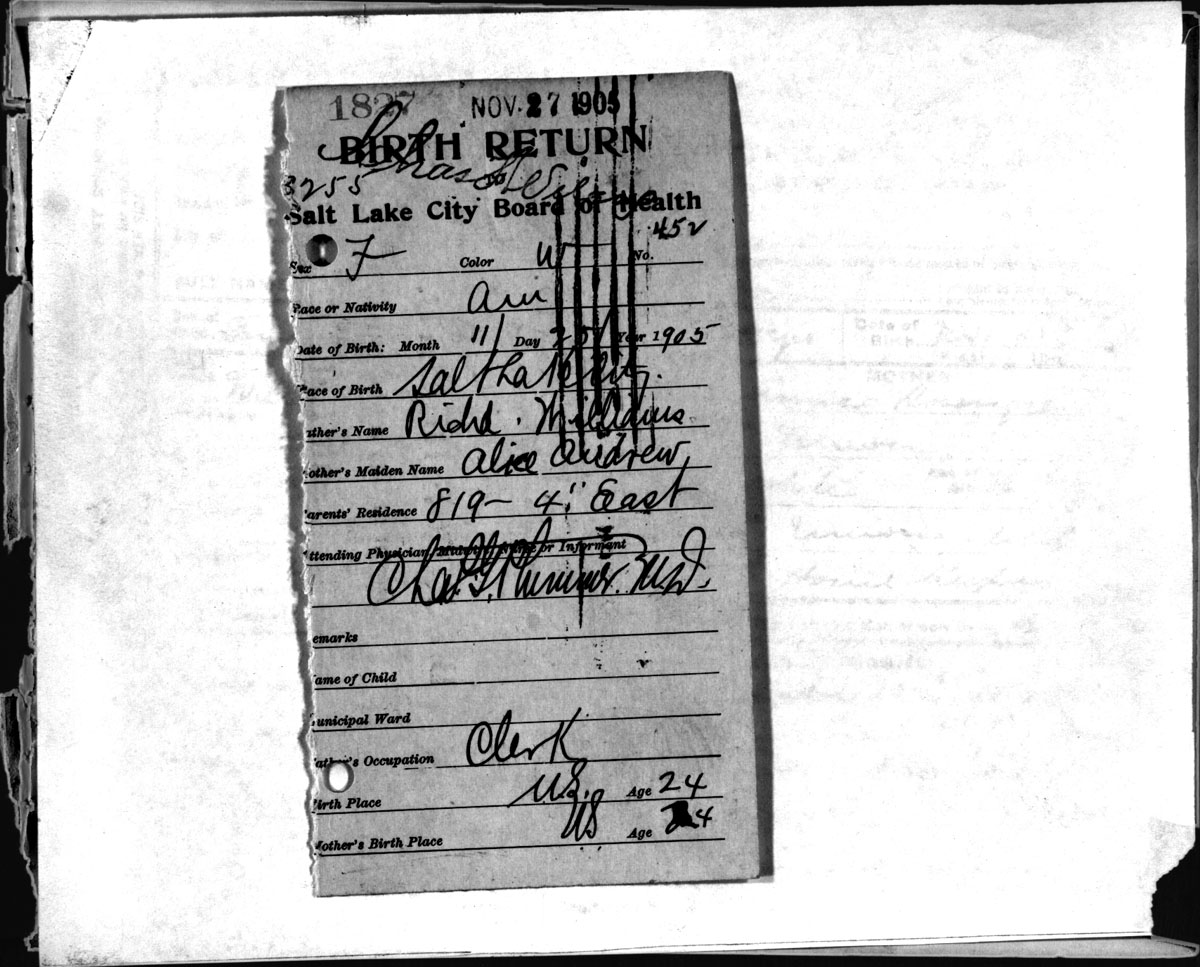 1827 NOV. 27 1905
BIRTH RETURN
Chas
3255 to
Salt Lake City Board of Health
452
Sex F Color W No.
Race or Nativity Am
Date of Birth: Month 11 Day 25 Year 1905
Place of Birth Salt Lake City.
ather's Name Richd. Williams
other's Maiden Name Alice Andrew
arents' Residence 819 - 4" East
ttending Physician, Midwife, Nurse or Informant
Chas. G. Plummer. M.D.
emarks
ame of Child
unicipal Ward
ather's Occupation Clerk
irth Place U.S. Age 24
Mother's Birth Place US Age 24